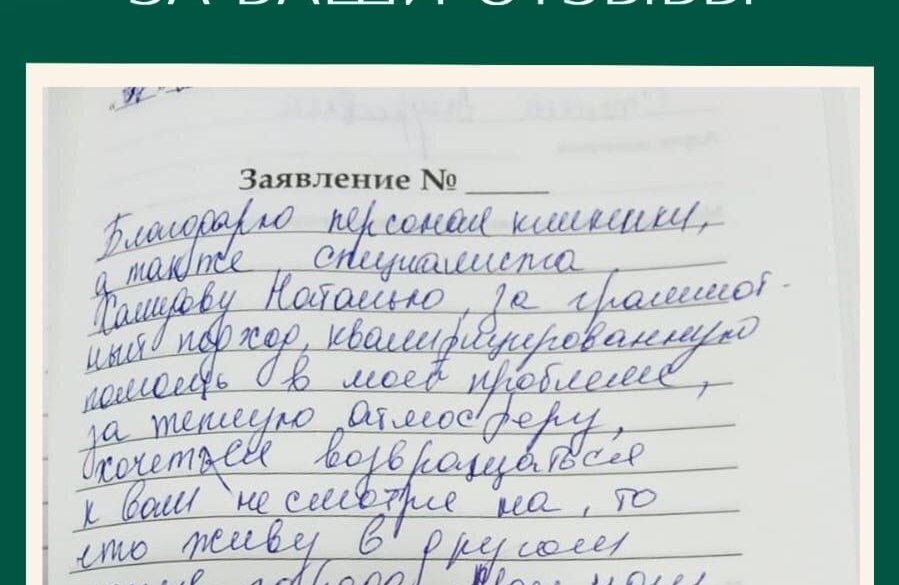 ЗА ВАШИ ОТЗЫВЫ
Заявление №
Благодарю персонал клиники,
а также специалиста
Наталью, за грамот-
ный подход, квалифицированную
помощь в моей проблеме,
за теплую атмосферу,
хочется возвращаться
к вам не смотря на, то
что живу в другом